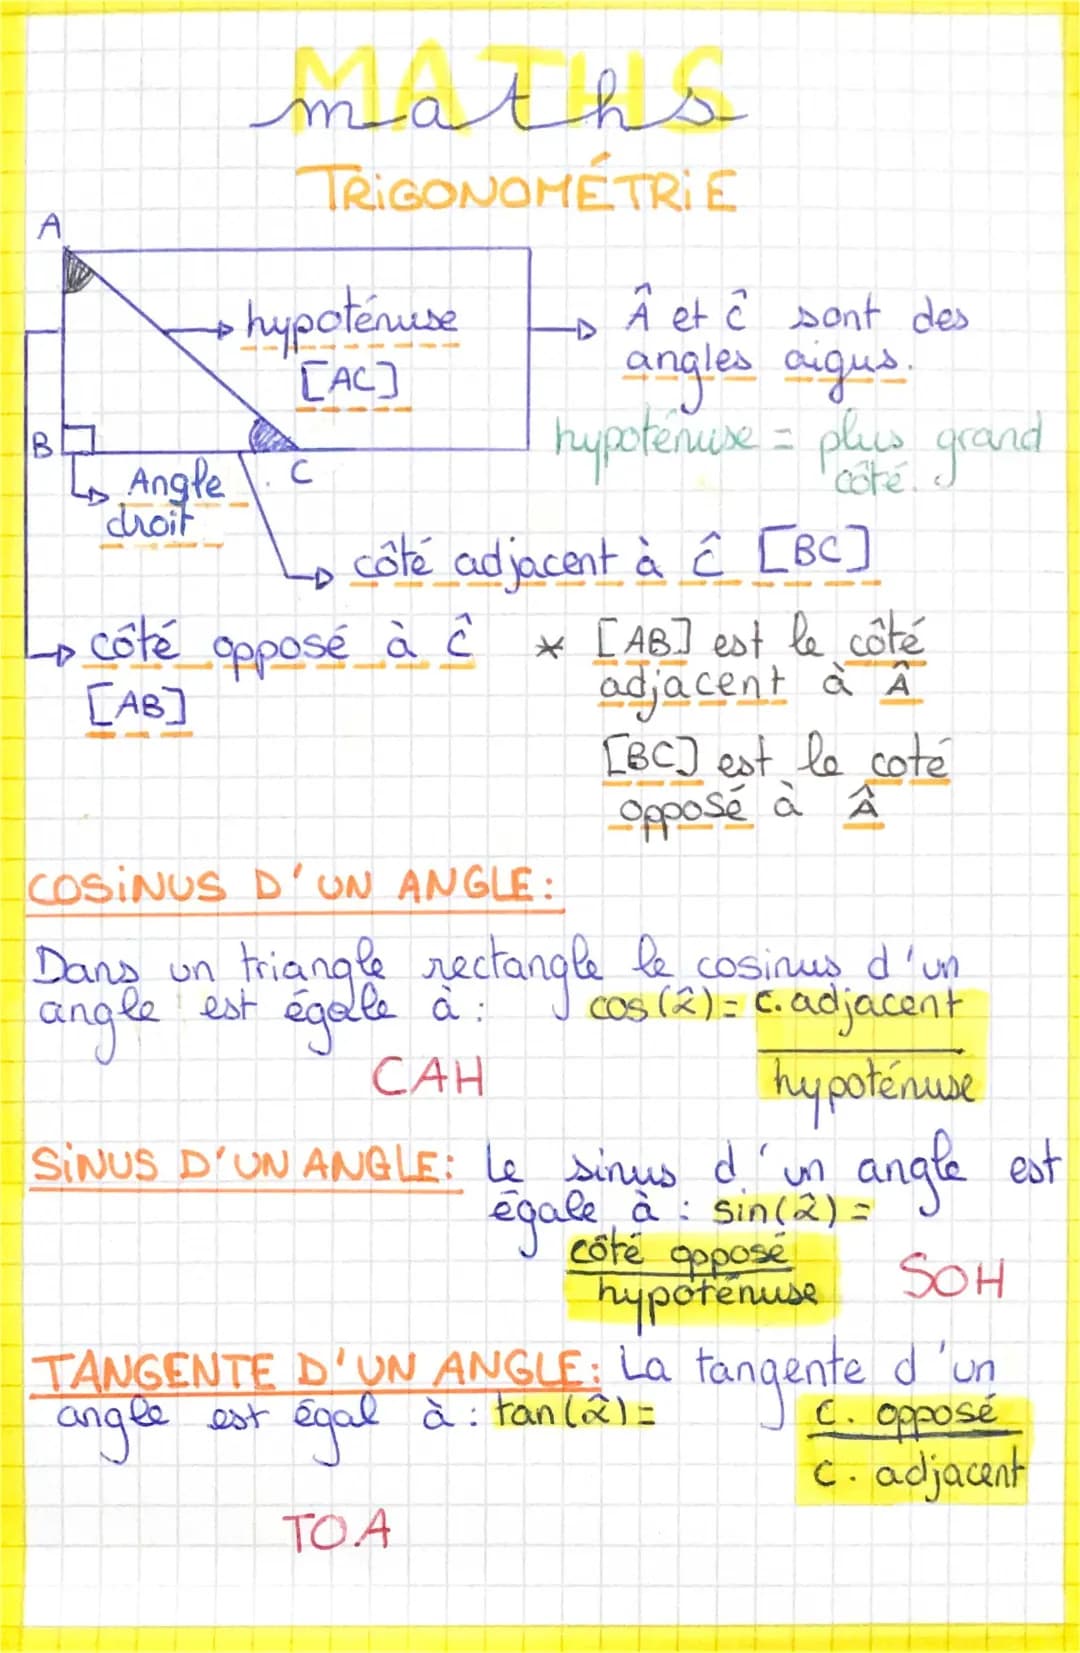 MATHS
maths
TRIGONOMÉTRIE
A
hypoténuse
[AC]
Â et Ĉ sont des
angles aigus.
B
C
hypoténuse = plus grand
côté.
Angle
droit
côté adjacent à Ĉ [BC]
côté opposé à Ĉ
[AB]
* [AB] est le côté
adjacent à Â
[BC] est le coté
opposé à Â
COSINUS D'UN ANGLE:
Dans un triangle rectangle le cosinus d'un
angle est égale à : cos(2̂) = c. adjacent
hypoténuse
CAH
SINUS D'UN ANGLE: Le sinus d'un angle est
égale à : sin(2̂) =
côté opposé
hypoténuse
SOH
TANGENTE D'UN ANGLE: La tangente d'un
angle est égal à : tan(2̂) = c. opposé
c. adjacent
TOA